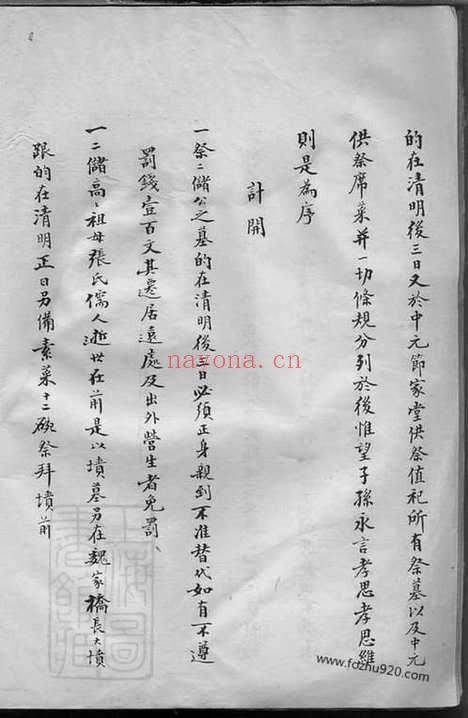 的在清明後三日又於中元節家堂供祭值祀所有祭墓以及中元
供祭席菜并一切條規分列於後惟望子孫永言孝思孝思維
則是為序
計開
一祭二儲公之墓的在清明後三日必須正身親到不准替代如有不遵
罰錢壹百文其遷居遠處及出外營生者免罰
一二儲高祖母張氏儒人逝世在前是以墳墓另在魏家橋長大墳
跟的在清明正日另備素菜十二碗祭拜墳前
nayona.cn
www.fozhu920.com